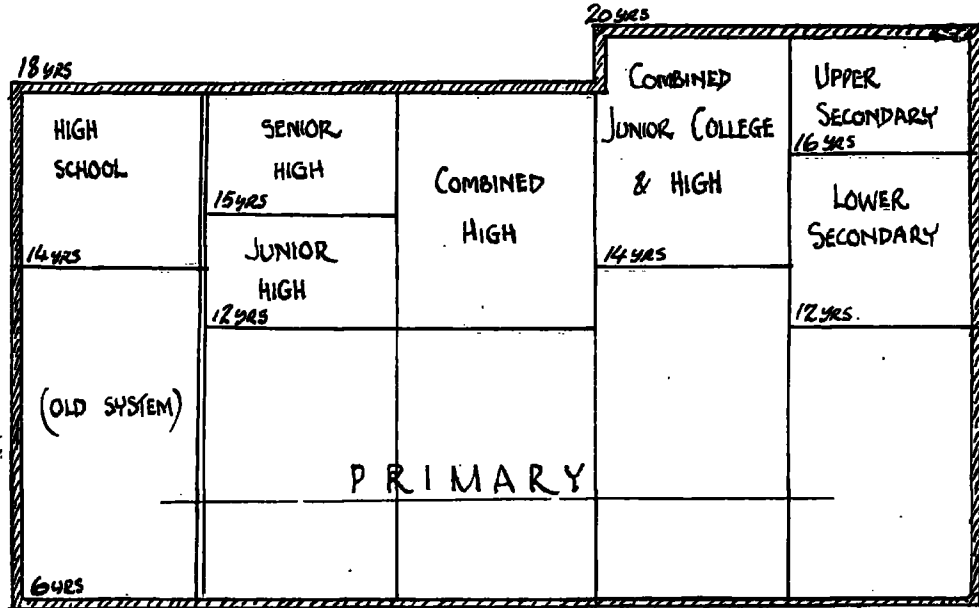 20 YRS
18 YRS
HIGH
SCHOOL
14 YRS
(OLD SYSTEM)
6 YRS
SENIOR
HIGH
15 YRS
JUNIOR
HIGH
12 YRS
COMBINED
HIGH
COMBINED
JUNIOR COLLEGE
& HIGH
14 YRS
UPPER
SECONDARY
16 YRS
LOWER
SECONDARY
12 YRS.
PRIMARY